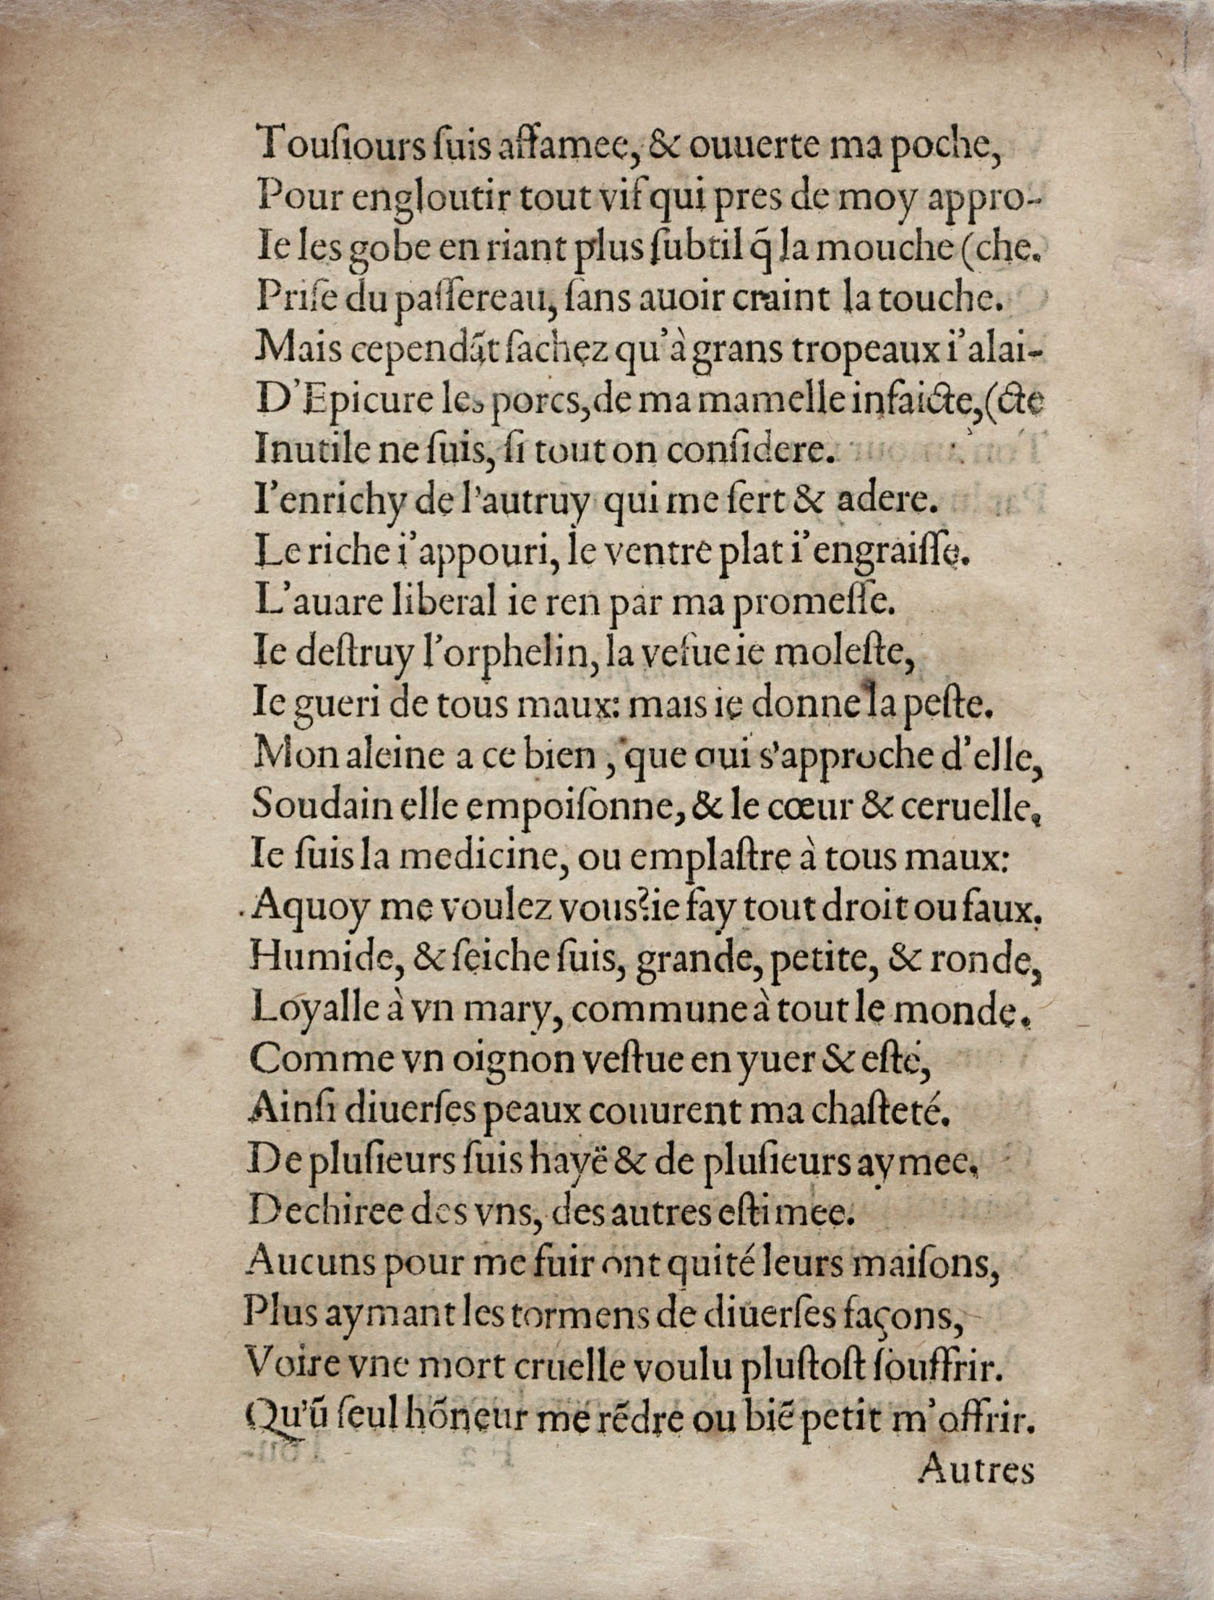 Touſiours ſuis affamee, & ouuerte ma poche,
Pour engloutir tout vif qui pres de moy appro-
Ie les gobe en riant plus ſubtil q̃ la mouche (che.
Priſe du paſſereau, ſans auoir craint la touche.
Mais cependãt ſachez qu'à grans tropeaux i'alai-
D'Epicure les porcs, de ma mamelle infaicte, (cte
Inutile ne ſuis, ſi tout on conſidere.
I'enrichy de l'autruy qui me ſert & adere.
Le riche i'appouri, le ventre plat i'engraiſſe.
L'auare liberal ie ren par ma promeſſe.
Ie deſtruy l'orphelin, la veſue ie moleſte,
Ie gueri de tous maux: mais ie donne la peſte.
Mon aleine a ce bien, que qui s'approche d'elle,
Soudain elle empoiſonne, & le cœur & ceruelle,
Ie ſuis la medicine, ou emplaſtre à tous maux:
Aquoy me voulez vous? ie fay tout droit ou faux.
Humide, & ſeiche ſuis, grande, petite, & ronde,
Loyalle à vn mary, commune à tout le monde.
Comme vn oignon veſtue en yuer & eſté,
Ainſi diuerſes peaux couurent ma chaſteté.
De pluſieurs ſuis hayë & de pluſieurs aymee,
Dechiree des vns, des autres eſtimee.
Aucuns pour me fuir ont quité leurs maiſons,
Plus aymant les tormens de diuerſes façons,
Voire vne mort cruelle voulu pluſtoſt ſouffrir.
Qu'ũ ſeul hõneur me rẽdre ou biẽ petit m'offrir.
Autres